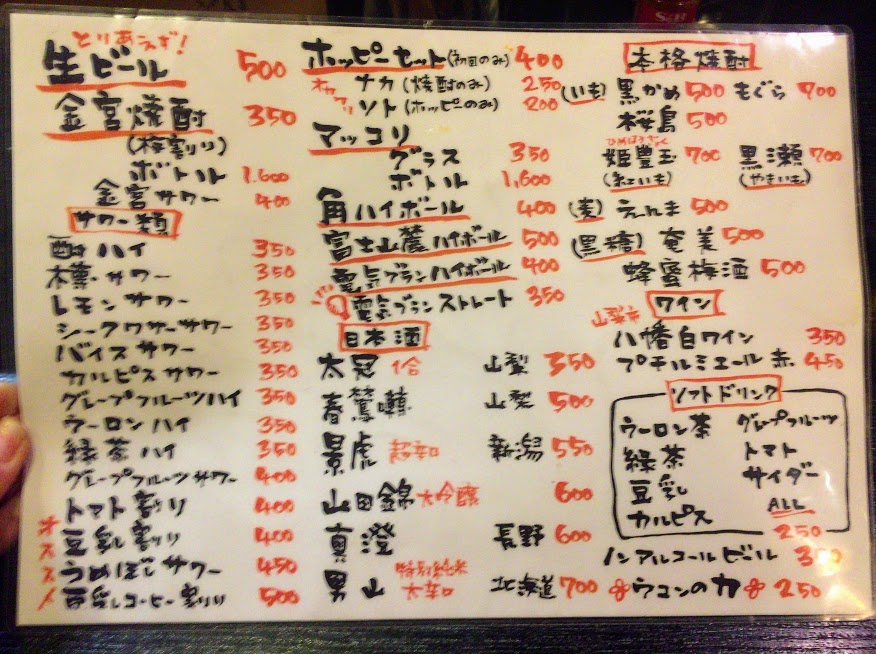 とりあえず!
生ビール 500
金宮焼酎 350
(梅割り)
ボトル 1,600
金宮サワー 400
サワー類
酎ハイ 350
サワー 350
レモンサワー 350
シークワサーサワー 350
バイスサワー 350
カルピスサワー 350
グレープフルーツハイ 350
ウーロンハイ 350
緑茶ハイ 350
グレープフルーツサワー 400
トマト割り 400
オススメ
豆乳割り 400
うめぼしサワー 450
豆乳コーヒー割り 500
ホッピーセット(初回のみ) 400
ナカ(焼酎のみ) 250
ソト(ホッピーのみ) 200
マッコリ
グラス 350
ボトル 1,600
角ハイボール 400
富士山麓ハイボール 500
電気ブランハイボール 400
電気ブランストレート 350
日本酒
太冠 1合 山梨 350
春鶯囀 山梨 500
景虎 超辛口 新潟 550
山田錦 大吟醸 600
真澄 長野 600
男山 特別純米 大辛口 北海道 700
本格焼酎
(いも) 黒かめ 500 もぐら 700
桜島 500
姫豊玉 700 黒瀬 700
(紅いも) (やきいも)
(麦) えんま 500
(黒糖) 奄美 500
蜂蜜梅酒 500
ワイン
山梨
八幡白ワイン 350
プチルミエール 赤 450
ソフトドリンク
ウーロン茶 グレープフルーツ
緑茶 トマト
豆乳 サイダー
カルピス ALL
250
ノンアルコールビール 350
ウコンの力 250